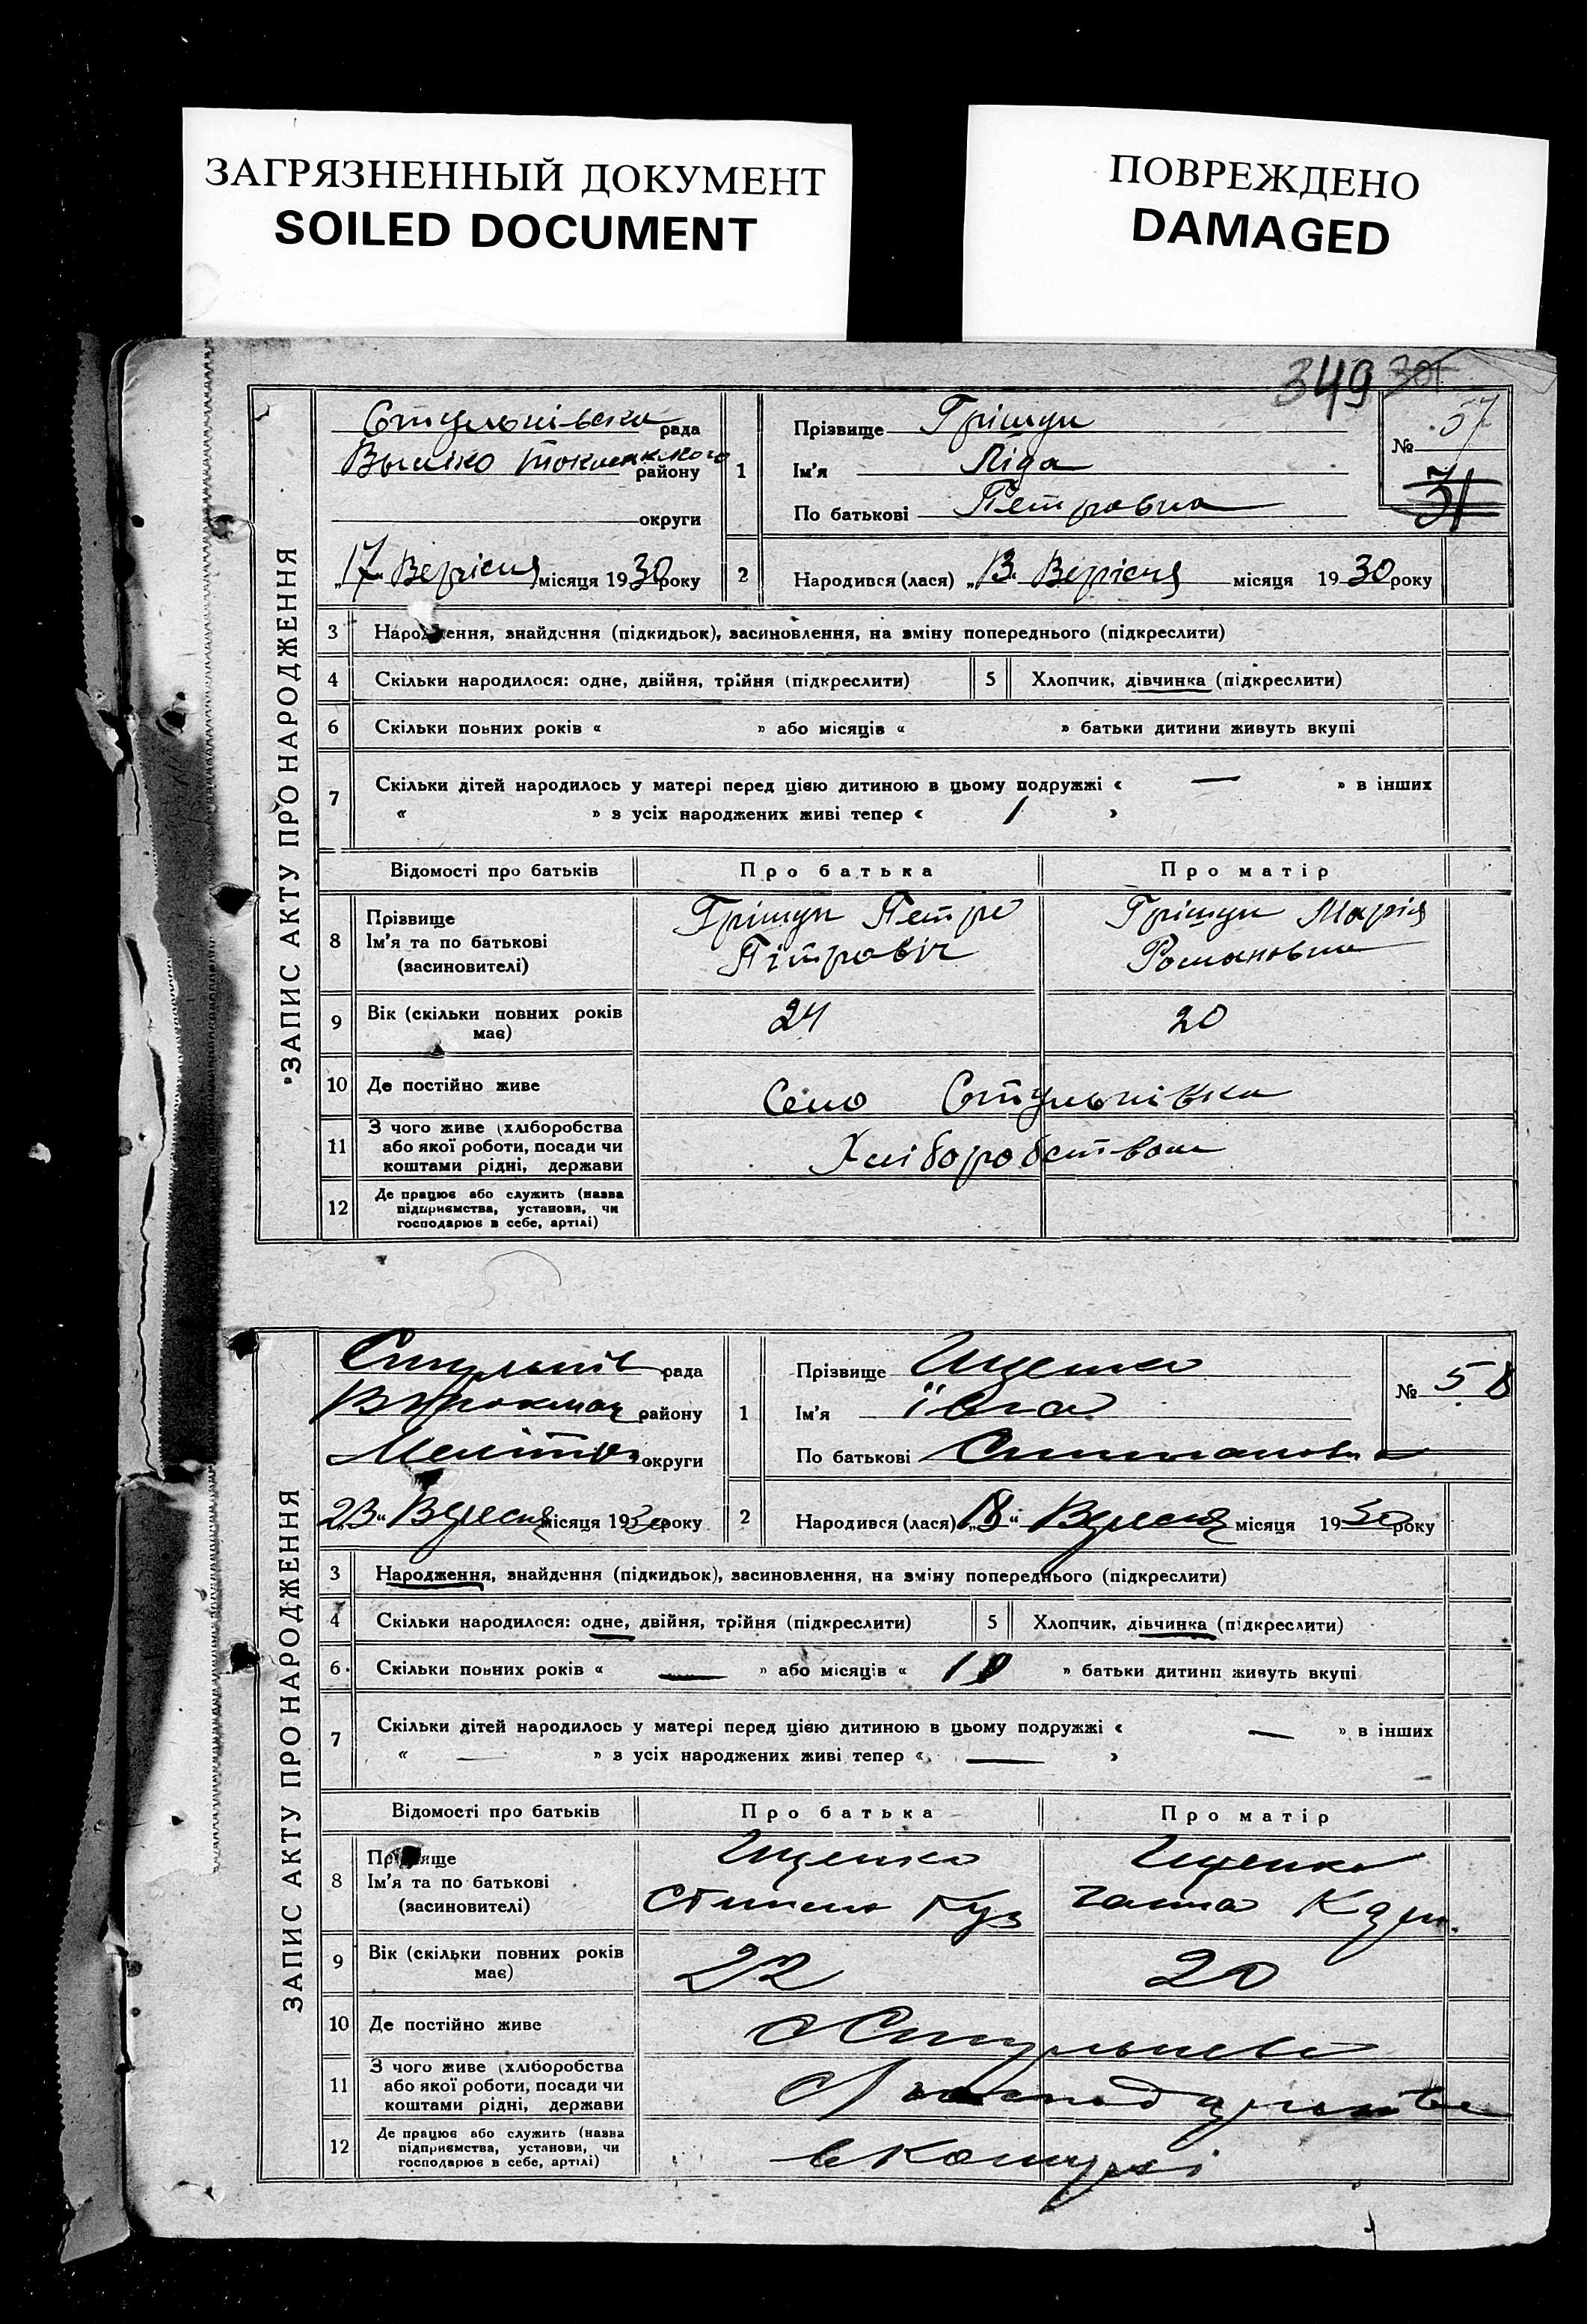 ЗАГРЯЗНЕННЫЙ ДОКУМЕНТ
SOILED DOCUMENT
ПОВРЕЖДЕНО
DAMAGED
349 301
ЗАПИС АКТУ ПРО НАРОДЖЕННЯ
Стульнівска рада
району
округи
„17" Верісня місяця 1930 року
1
Прізвище Грішун
Ім'я Ліда
По батькові Петровна
№ 57
31
2 Народився (лася) „13" Верісня місяця 1930 року
3 Народження, знайдення (підкидьок), засиновлення, на зміну попереднього (підкреслити)
4 Скільки народилося: одне, двійня, трійня (підкреслити) 5 Хлопчик, дівчинка (підкреслити)
6 Скільки повних років « » або місяців « » батьки дитини живуть вкупі
7 Скільки дітей народилось у матері перед цією дитиною в цьому подружжі « — » в інших
« » з усіх народжених живі тепер « 1 »
Відомості про батьків Про батька Про матір
8 Прізвище
Ім'я та по батькові
(засиновителі)
Грішун Петро
Пітровіч
Грішун Марія
Романовна
9 Вік (скільки повних років має) 24 20
10 Де постійно живе Село Стульнівка
11 З чого живе (хліборобства
або якої роботи, посади чи
коштами рідні, держави
Хліборобством
12 Де працює або служить (назва
підприємства, установи, чи
господарює в себе, артілі)
ЗАПИС АКТУ ПРО НАРОДЖЕННЯ
Стульнів рада
району
Меліто округи
„23" Вересня місяця 1930 року
1
Прізвище Ищенко
Ім'я Ївга
По батькові
№ 58
2 Народився (лася) „18" Вересня місяця 1930 року
3 Народження, знайдення (підкидьок), засиновлення, на зміну попереднього (підкреслити)
4 Скільки народилося: одне, двійня, трійня (підкреслити) 5 Хлопчик, дівчинка (підкреслити)
6 Скільки повних років « — » або місяців « 10 » батьки дитини живуть вкупі
7 Скільки дітей народилось у матері перед цією дитиною в цьому подружжі « — » в інших
« — » з усіх народжених живі тепер « — »
Відомості про батьків Про батька Про матір
8 Прізвище
Ім'я та по батькові
(засиновителі)
Ищенко
Куз
Ищенко
ганна
9 Вік (скільки повних років має) 22 20
10 Де постійно живе
11 З чого живе (хліборобства
або якої роботи, посади чи
коштами рідні, держави
12 Де працює або служить (назва
підприємства, установи, чи
господарює в себе, артілі)